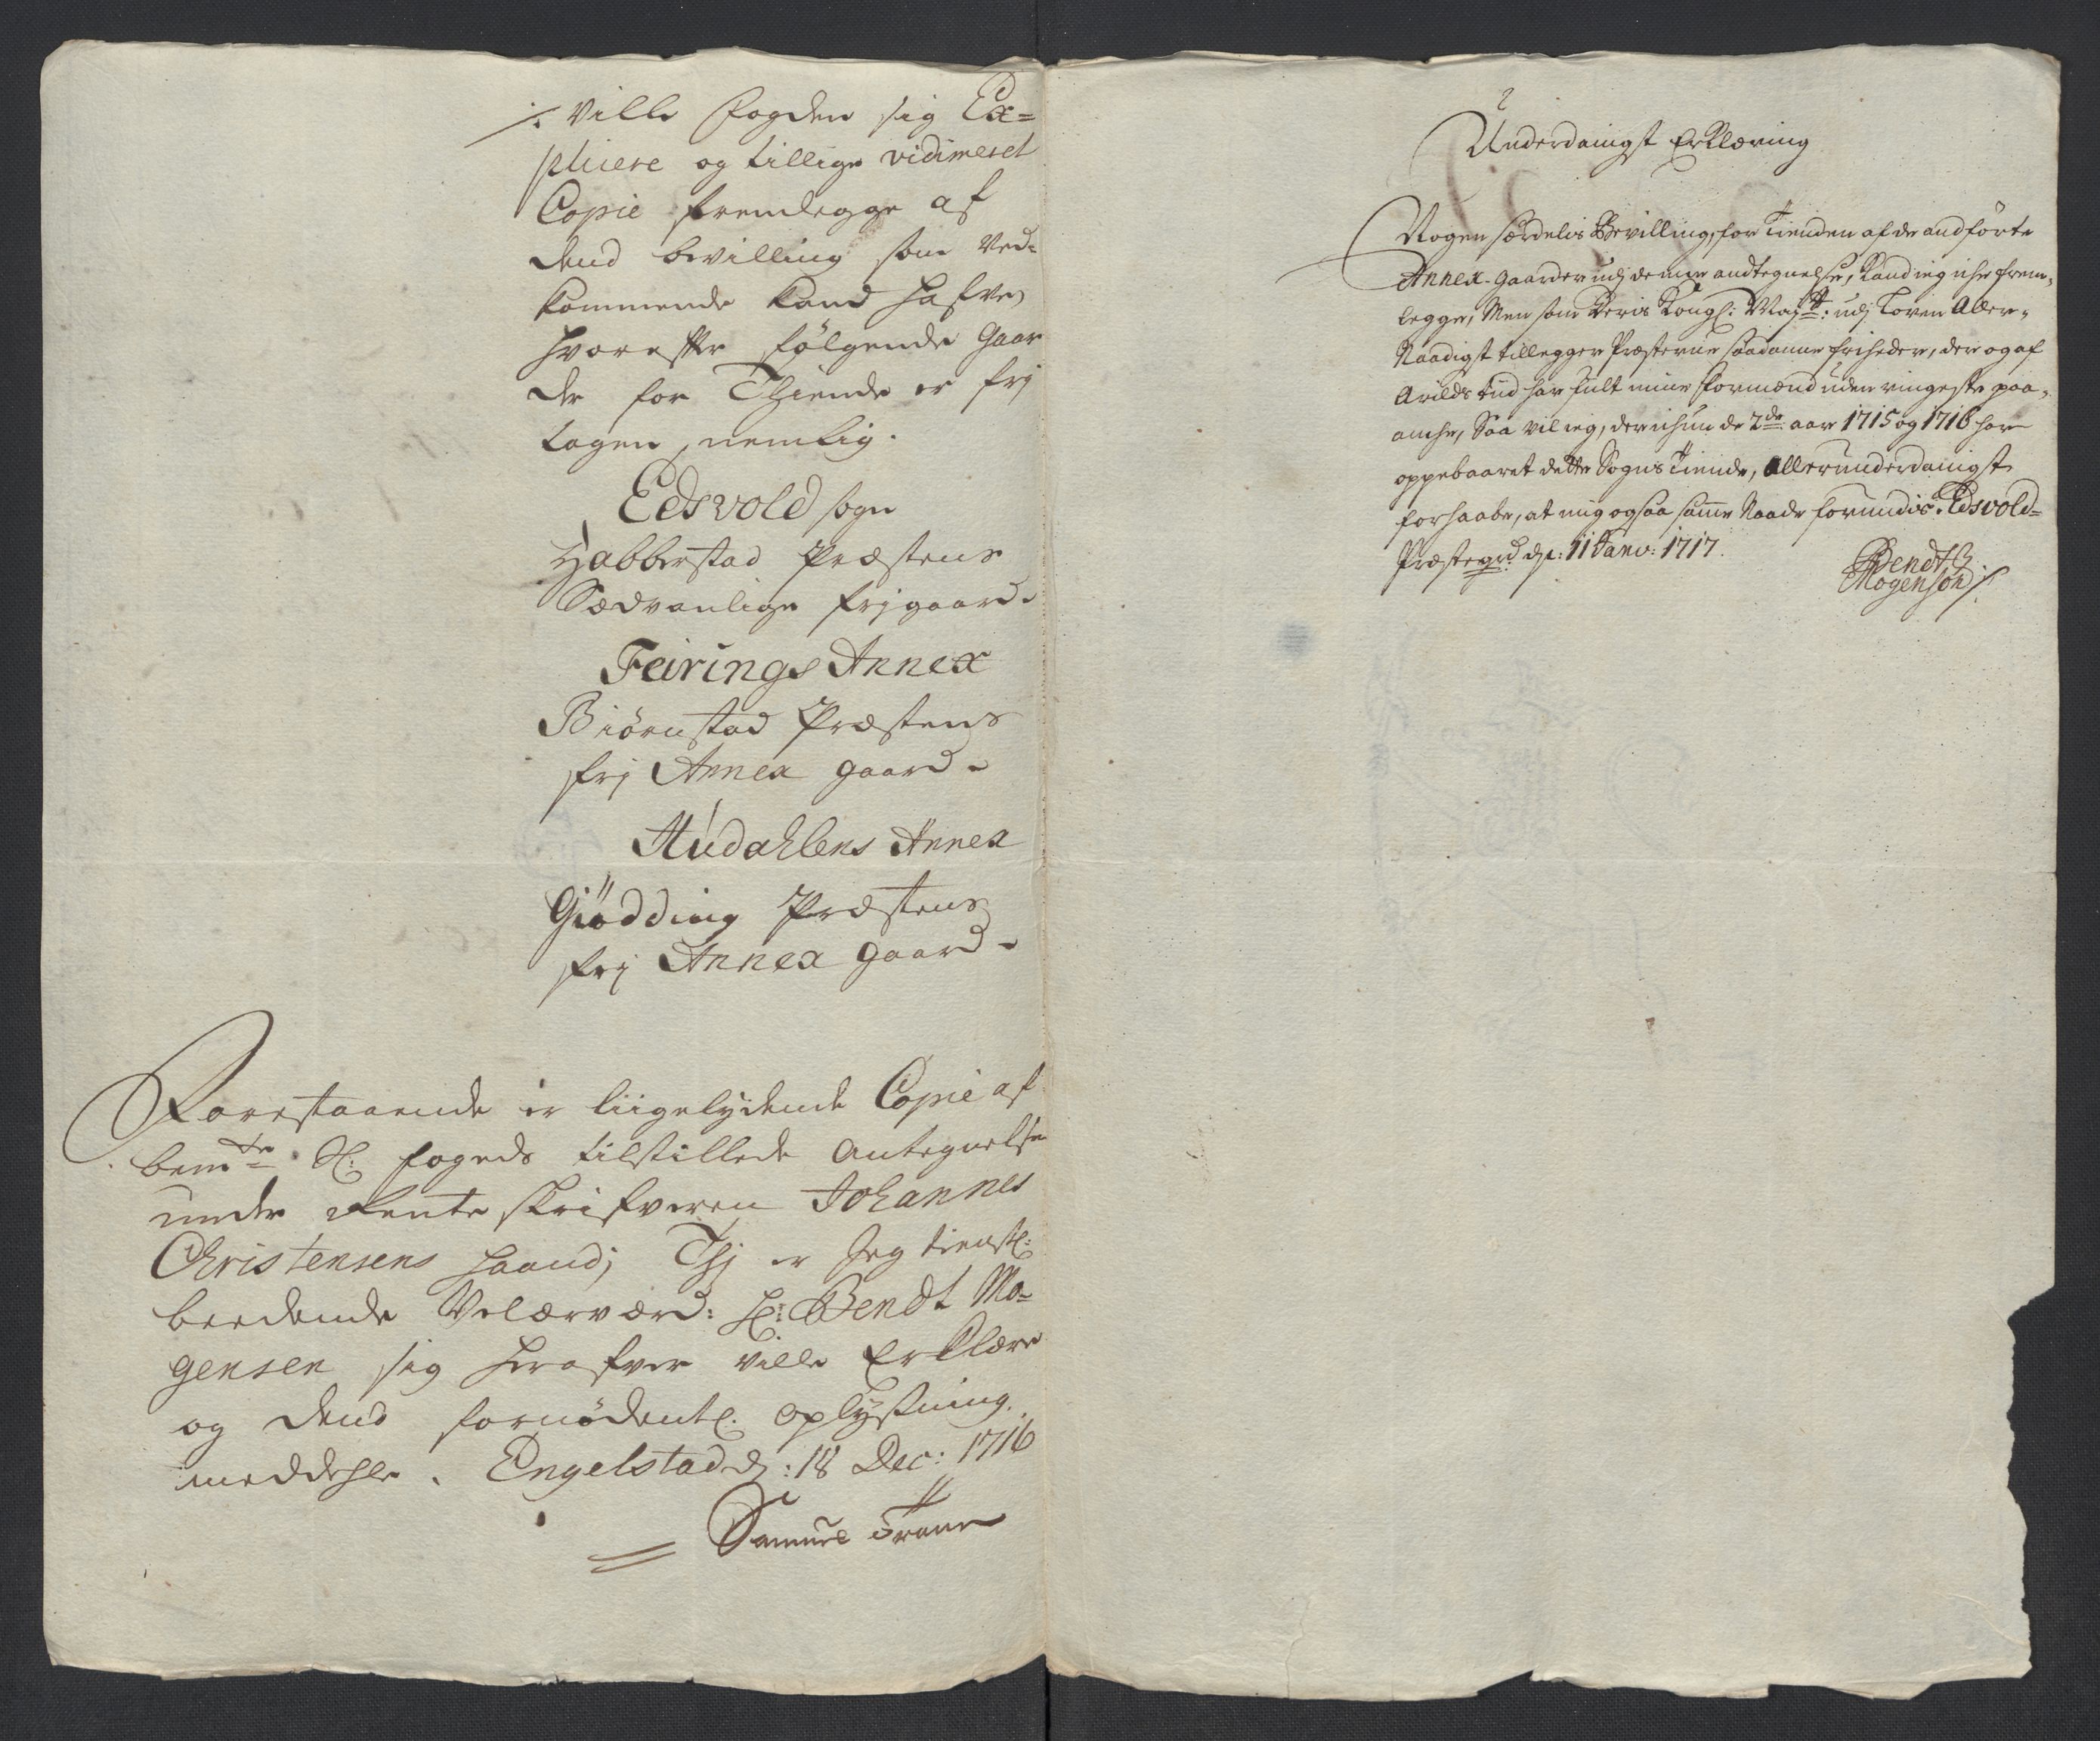 ⁒ Ville fogden sig Ex=
plicere og tillige vidimeret
Copie fremlegge af
dend bevilling som Ved=
kommende kand hafve,
hvorefter følgende Gaar
de for Thiende er frj
tagen, nemlig.
Edsvold sogn
Habberstad Præstens
Sædvanlige frjgaard.
Feirings Annex
Biørnstad Præstens
frj Annex gaard.
Hudahlens Annex
Giødding Præstens
frj Annex gaard.
Forestaaende er liigelydende Copie af
bemte Hr: fogeds tilstillede Antegnelse
under Rente skrifveren Johannes
Christensens haand; Thj er Jeg tienstl:
beedende Velærværd: Hr: Bendt Mo=
gensen sig herofver ville Erklære
og dend fornødentl. oplysning
meddehle. Engelstad d: 18 Dec: 1716
Samuel Trane
Underdanigst Erklæring
Nogen særdelis Bevilling, for Tienden af de andførte
Annex-gaarder udj denne andtegnelse, kand ieg iche frem,
legge, Men som Deris Kongl: Maytt: udj Loven Aller,
Naadigst tillegger Præsterne saadanne friheder, der og af
Arilds tid har fult mine formænd uden ringeste paa,
anche, Saa vil ieg, der ichun de 2de aar 1715 og 1716 har
oppebaaret dette Sogns Tiende, allerunderdanigst
forhaabe, at mig ogsaa samme Naade forundis. Edsvold=
Præstegrd d: 11 Janv: 1717.
Bendt
Mogensøn